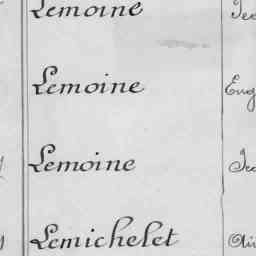 Lemoine
Lemoine Eug
Lemoine
Lemichelet